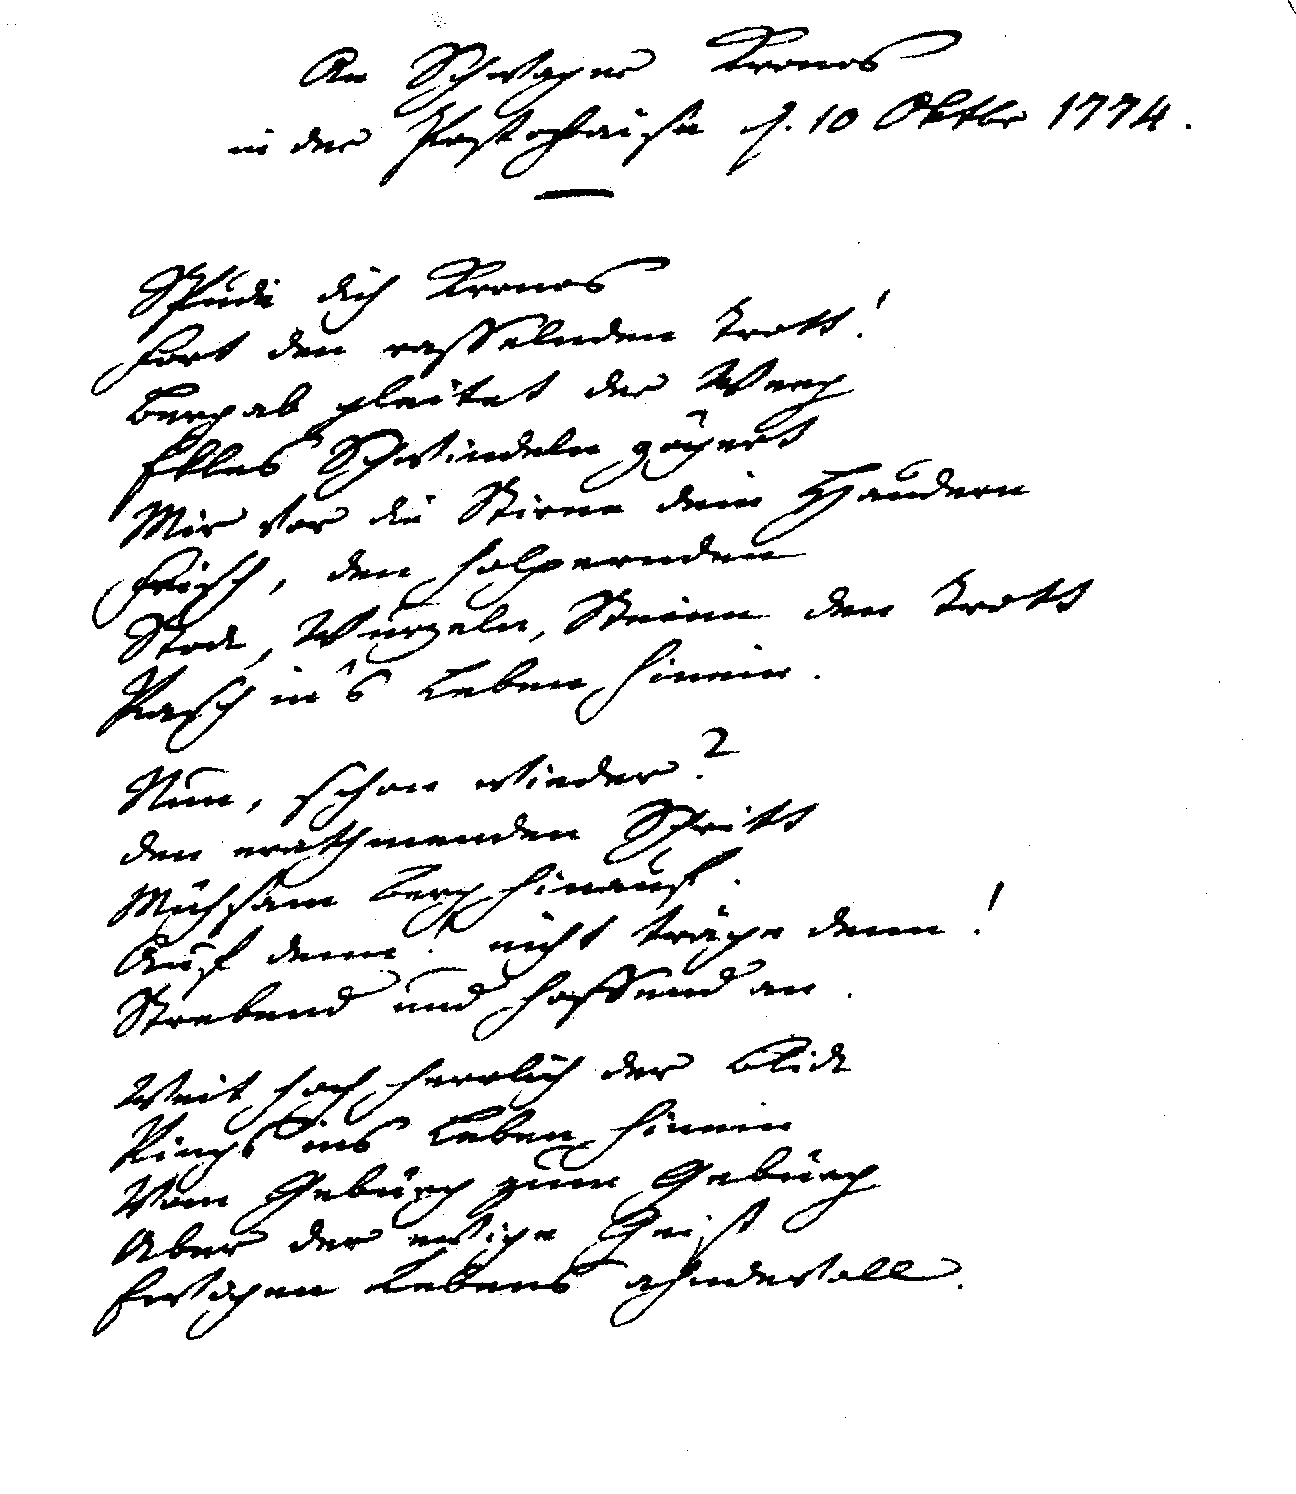 An Schwager Kronos
in der Postchaise d. 10 Oktbr 1774.
Spude dich Kronos
Fort den rasselnden Trott!
Bergab gleitet der Weeg
Ekles Schwindeln zögert
Mir vor die Stirne dein Haudern
Frisch, den holpernden
Stock, Wurzeln, Steine den Trott
Rasch in's Leben hinein.
Nun, schon wieder?
den erathmenden Schritt
Mühsam Berg hinauf.
Auf denn! nicht träge denn!
Strebend und hoffend an.
Weit hoch herrlich der Blick
Rings ins Leben hinein
Vom Gebürg zum Gebürg
Aber der ewige Geist
Ewigen Lebens ahndevoll.